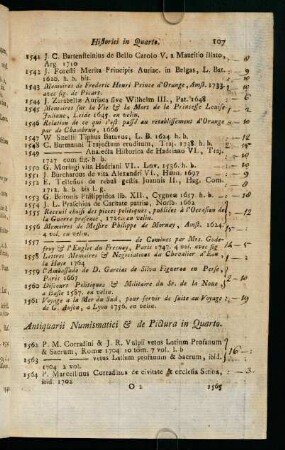 Historici in Quarto. 107
1541 J. C. Battenfteinius de Bello Carolo V. a Mauritio illato, Arg. 1710
1542 J. Fonelli Merita Principis Auriac. in Belgas, L. Bat. 1620. h. b.
1543 Memoires de Frederic Henri Prince d'Orange, Amst. 1733 avec fig. de Picart.
1544 J. Zurabellæ Auriaca five Wilhelm III., Pat. 1648
1545 Memoires sur la Vie & la Mort de la Princesse Louise Juliane, Leide 1645. en velin.
1546 Relation de ce qui s'est passé au retablissement d'Orange par de Chambrun, 1666
1547 W Snellii Tiphus Batavus, L. B. 1624 h. b.
1548 C. Burmanni Trajectum eruditum, Traj. 1738 h. b.
1549 Analecta Historica de Hadriano VI., Traj. 1727 cum fig. h. b.
1550 G. Moringi vita Hadriani VI. Lov. 1536. h. b.
1551 J. Burchardus de vita Alexandri VI., Hann. 1697
1552 E. Telfcius de rebus geftis Joannis II., Hag. Com. 1712. h. b. L g.
1553 G. Benimis Philippica lb. XII., Cygnese 1657. h. b.
1554 J. L. Prafchius de Caritate patriæ, Norib. 1662
1555 Recueil choifi des pieces politiques, publiées à l'Occasion de la Guerre prefente, 1741 en velin.
1556 Memoires de Meffire Philippe de Mornay, Amst. 1624. 4 vol. en velin.
1557 de Comines par Mrs. Godefroy & l'Englet du Fresnoy, Paris 1747. 4 vol. avec fig
1558 Lettres Memoires & Negociations du Chevalier d'Eon, la Haye 1764
1559 l'Ambassade de D. Garcias de Silva Figueroa en Perse, Paris 1667
1560 Discours Politiques & Militaire du Sr. de la Noue, a Basle 1587. en velin.
1561 Voyage a la Mer du Sud, pour servir de suite au Voyage de G. Anson, a Lyon 1756. en velin.
Antiquarii Numismatici & de Pictura in Quarto.
1562 P. M. Corradini & J. R. Vulpii vetus Latium Profanum & Sacrum, Rome 1704. 10 tom. 7 vol. l. b
1563 vetus Latium profanum & Sacrum, ibid. 1704 2 vol.
1564 P. Marcellinus Corradinus de civitate & ecclesia Setina, ibid. 1702
O 2 1565